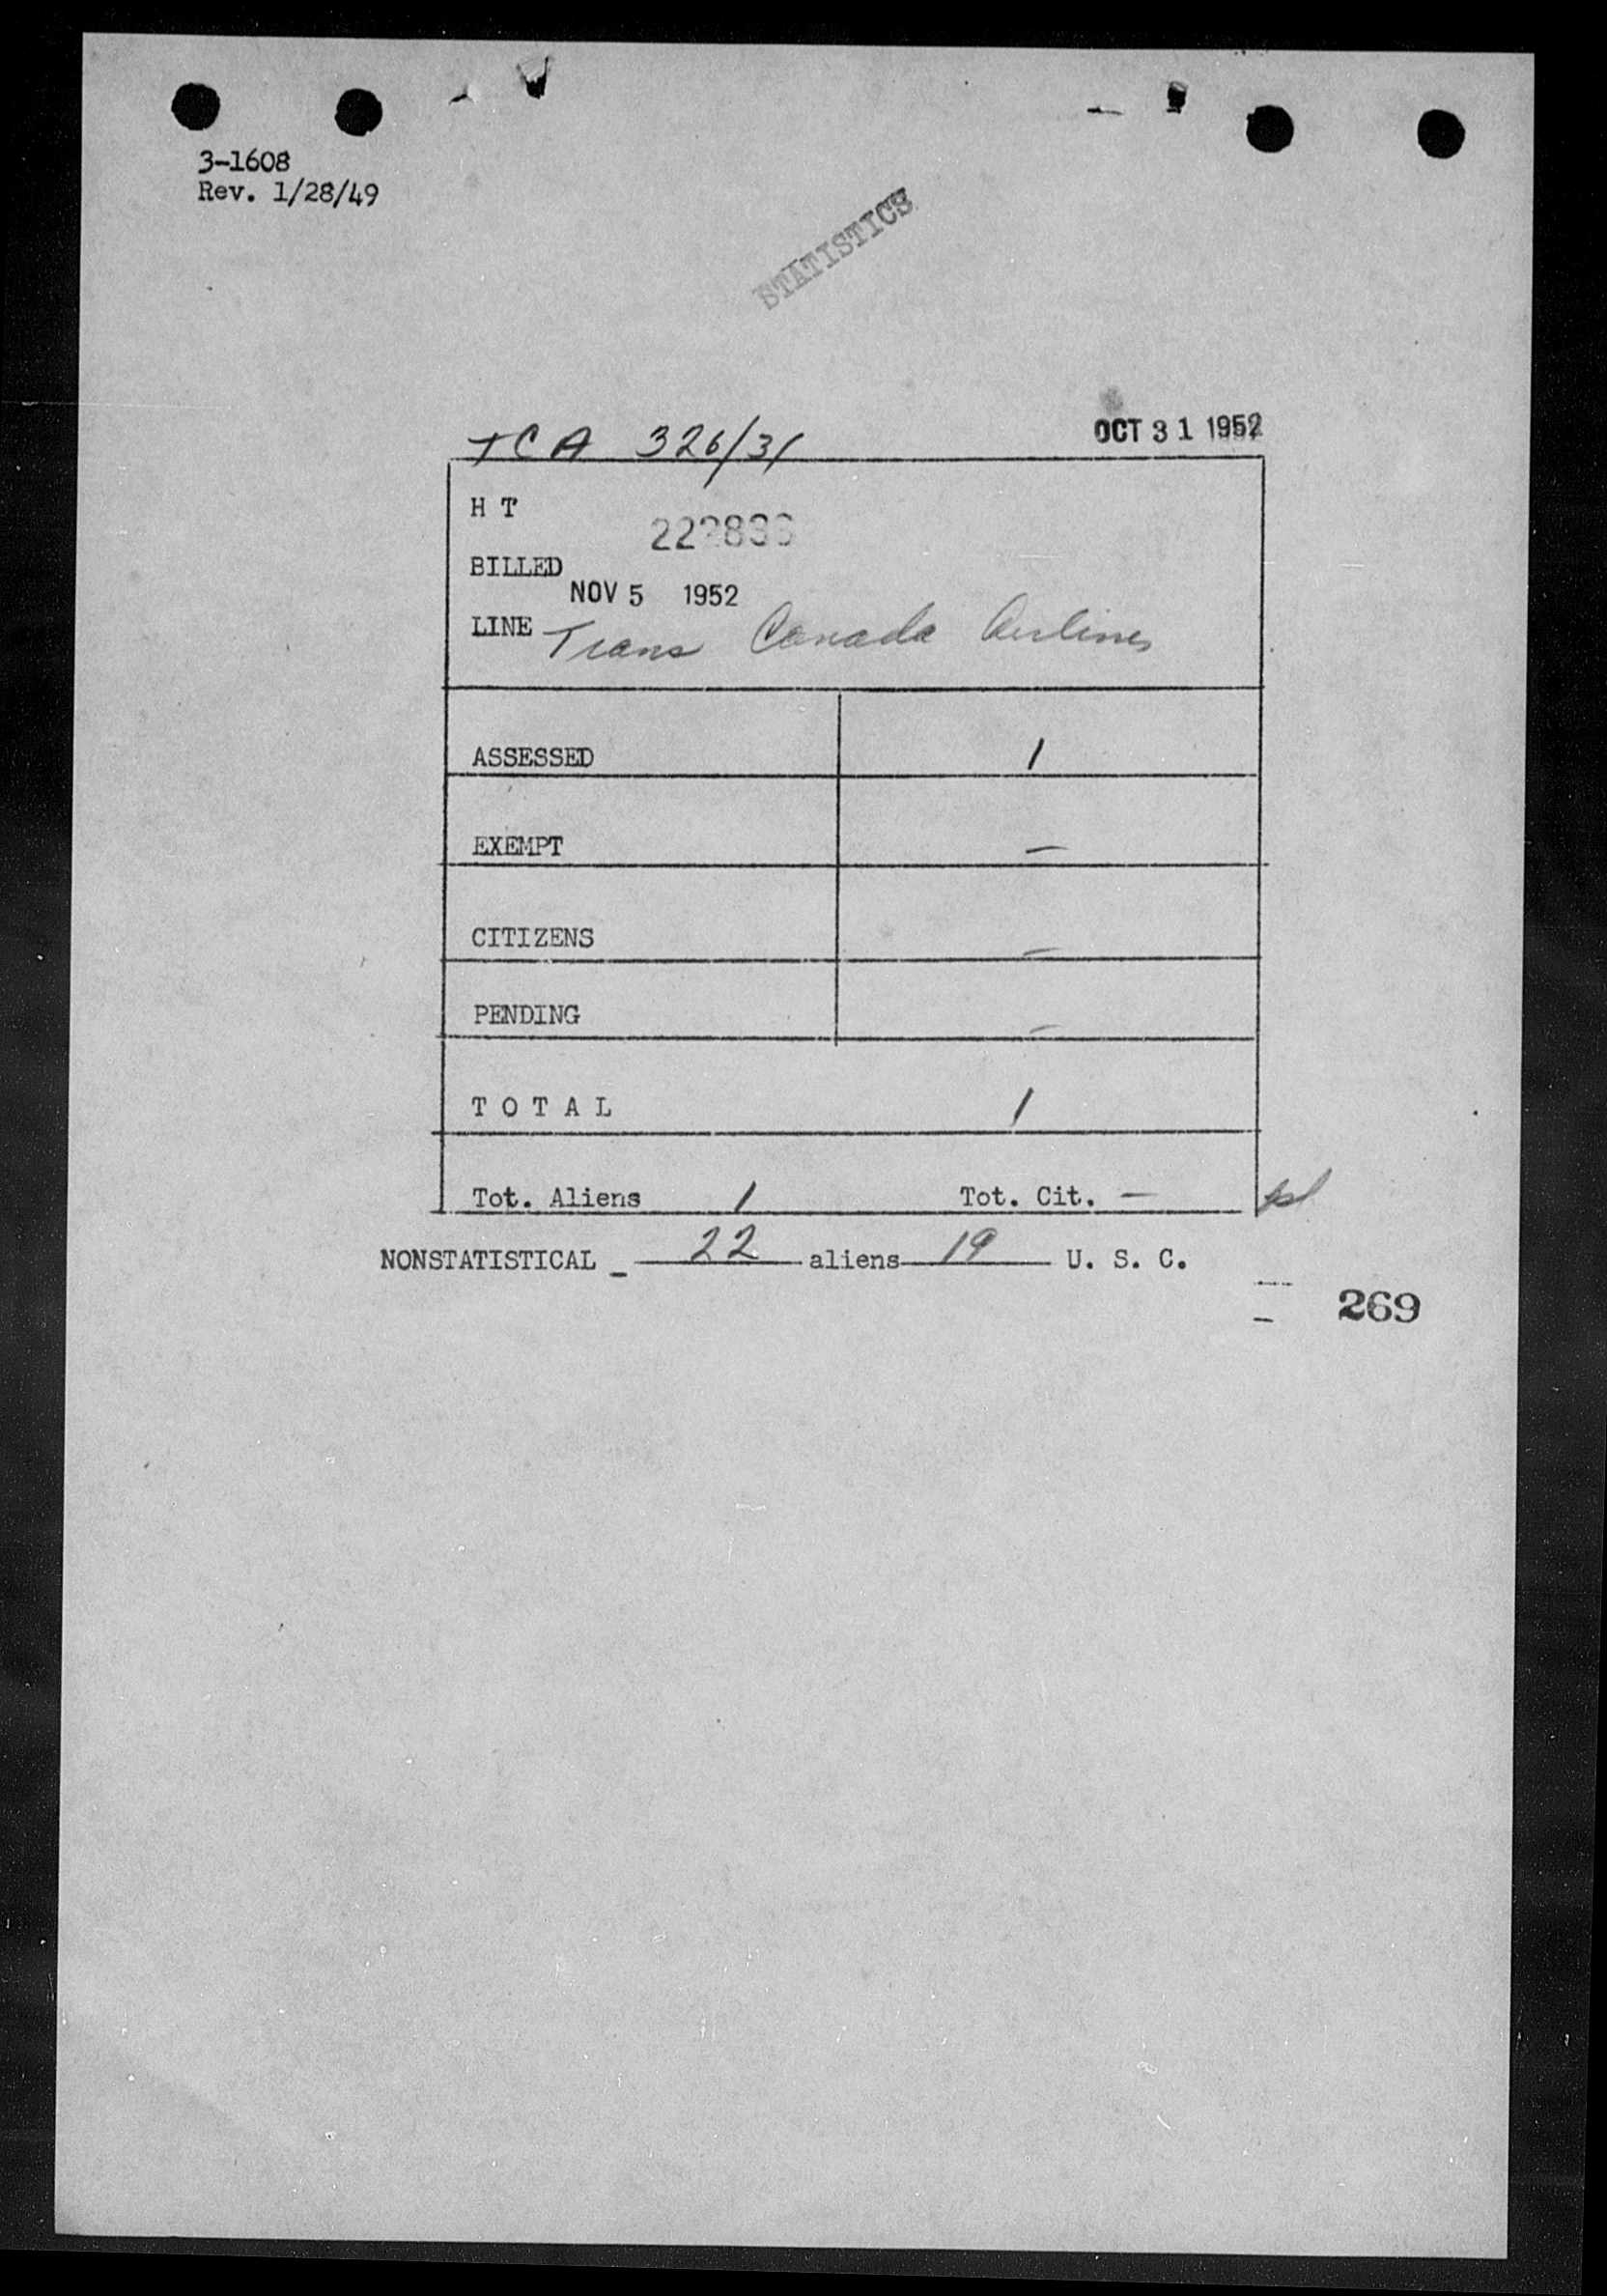 3-1608
Rev. 1/28/49
STATISTICS
TCA 326/31 OCT 31 1952
H T
BILLED
NOV 5 1952
LINE Trans Canada Airlines
ASSESSED 1
EXEMPT —
CITIZENS —
PENDING —
TOTAL 1
Tot. Aliens 1 Tot. Cit. —
NONSTATISTICAL - 22 aliens 19 U. S. C.
269